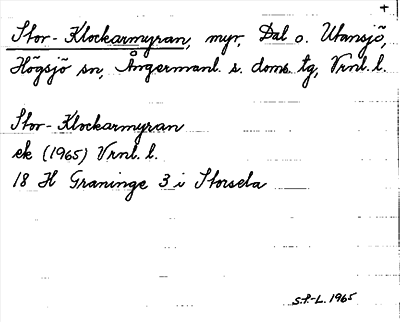 +
Stor-Klockarmyran, myr, Dal o. Utansjö,
Högsjö sn, Ångermanl. s. doms. tg, Vrnl. l.
Stor-Klockarmyran
ek (1965) Vrnl. l.
18 H Graninge 3 i Storsela
S.P.-L. 1965